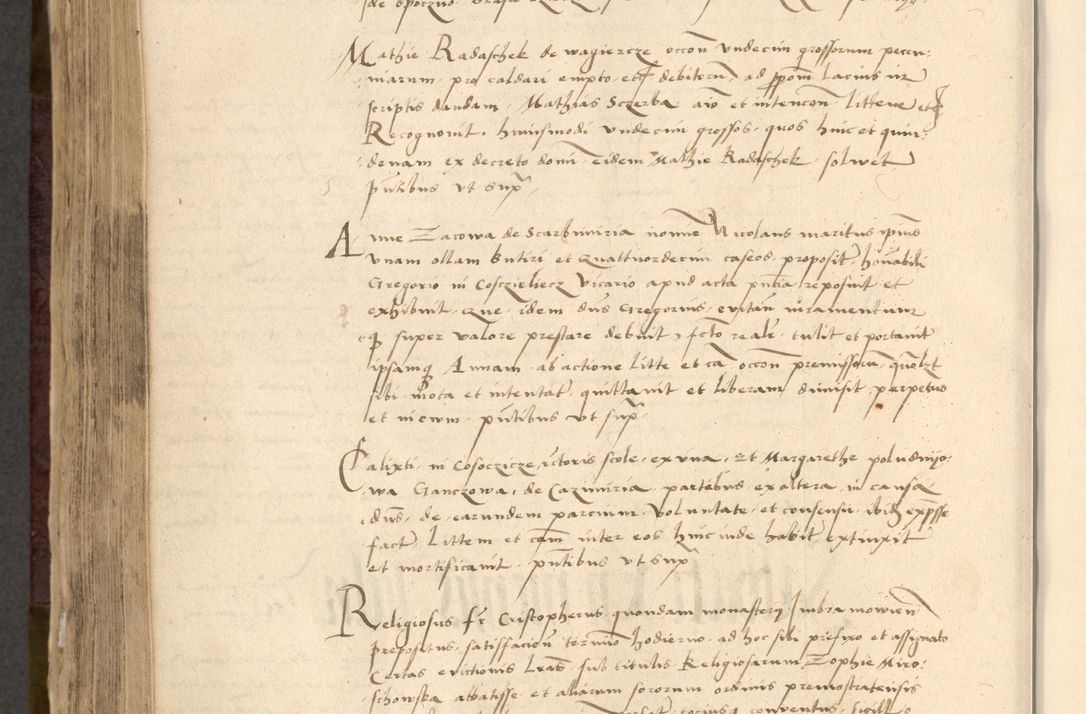 Mathie Radaschek de wagiercze occon undecim grossorum pecu-
niarum pro caldari empto etc debitorum ad spom lacius in
scriptis dandam Mathias Sczerba aio et intencon littem etc
Recognovit huiusmodi undecim grossos quos hinc et quin-
denam ex decreto domi eidem Mathie Radaschek solwet
pntibus ut supra
Anne Zacowa de Scarbimiria nomine Nicolaus maritus ipius
Unam ollam butiri et quattuordecim caseos proposit honabili
Gregorio in Cosczieliecz vicario apud acta pntia reposuit et
exhibuit que idem dns Gregorius evitan iuramentum
qd super valore prestare debuit fcto reale tulit et portavit
ipsamque Annam ab actione litte et ca occon premissorum quolzt
sibi mota et intentat quittavit et liberam dimisit perpetuo
et in ewm pntibus ut supra
Calixti in Cosoczicze rectoris scole ex una et Margarethe poludnijo-
wa Ganczowa de Cazimiria partibus ex altera in causa
dns de earundem parcium voluntate et consensu ibidem expsse
fact littem et cam inter eos hinc inde habit extinxit
et mortificavit pntibus ut supra
Religiosus fr Cristopherus quondam monasterij Imbramowien
prepositus satisfacien termino hodierno ad hoc sibi prefixo et assignato
Certas evictionis lras sub titulis Religiosarum Zophie Miro-
schowska abbatisse et aliarum sororum ordinis premostratensis
totiusque conventus sigill